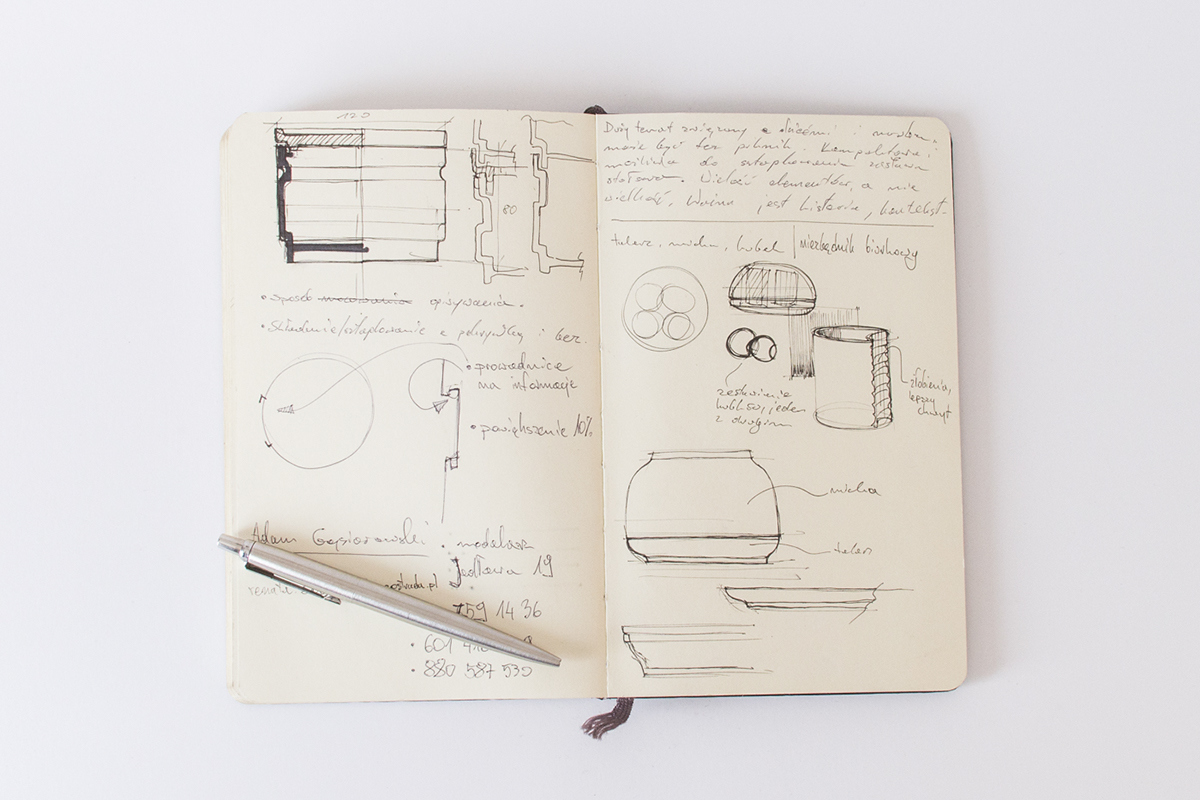 120
80
• sposób mocowania opisywania.
• składanie/sztaplowanie z pokrywką i bez.
• prowadnice
na informacje
• powiększenie 10%
Adam Gąsiorowski • modelarz
Jodłowa 19
renata.
759 14 36
• 601
• 880 587 530
Duży temat związany z dziećmi i
może być też piknik. Kompaktowa,
możliwa do sztaplowania
stołowa. Wielość elementów, a nie
wielkość. Ważna jest historia, kontekst.
talerz, miska, kubek | niezbędnik biurkowy
zestawienie
kubków, jeden
z drugim
żłobienia,
lepszy
chwyt
miska
talerz